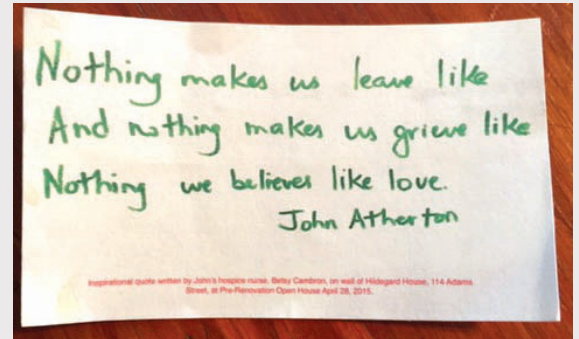 Nothing makes us leave like
And nothing makes us grieve like
Nothing we believes like love.
John Atherton
Inspirational quote written by John's hospice nurse, Betsy Cambron, on wall of Hildegard House, 114 Adams
Street, at Pre-Renovation Open House April 28, 2015.